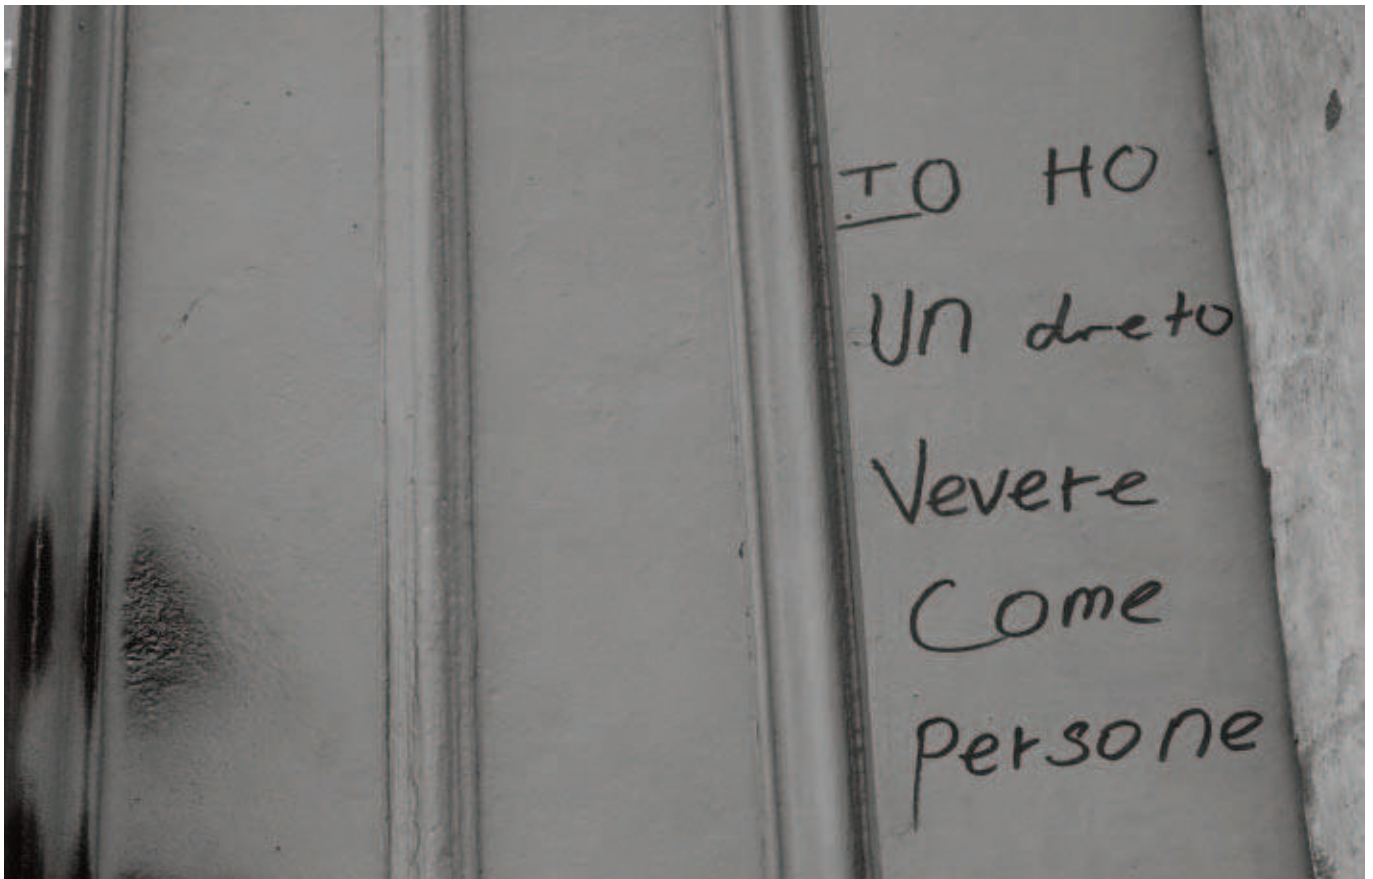 IO HO
Un dreto
Vevere
Come
persone